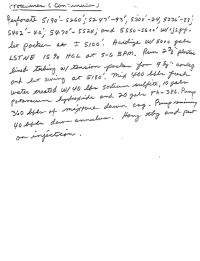 Procedure (Continued)
Perforate 5190'-5260', 5247'-93', 5300'-24, 5336'-83;
5402'-40; 5470'-5520; and 5550-5600' w/ JSPF.
Set packer at ± 5100'. Acidize w/ 5000 gals
LSTNE 15% HCL at 5-6 BPM. Run 2 3/8" plastic
lined tubing w/ tension packer for 4 1/2" casing
and set swing at 5180'. Mix 400 bbls fresh
water treated w/ 40 lbs sodium sulfite, 10 gals
potassium hydroxide and 20 gals TH-386. Pump
360 bbls of mixture down csg. Pump remaining
40 bbls down annulus. Hang tbg and put
on injection.